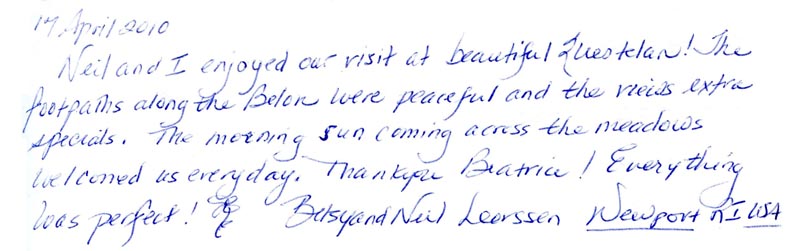 17 April 2010
Neil and I enjoyed our visit at beautiful Questelan! The
footpaths along the Belon were peaceful and the views extra
specials. The morning sun coming across the meadows
welcomed us everyday. Thankyou Beatrice! Everything
was perfect! Betsy and Neil Leerssen Newport RI USA